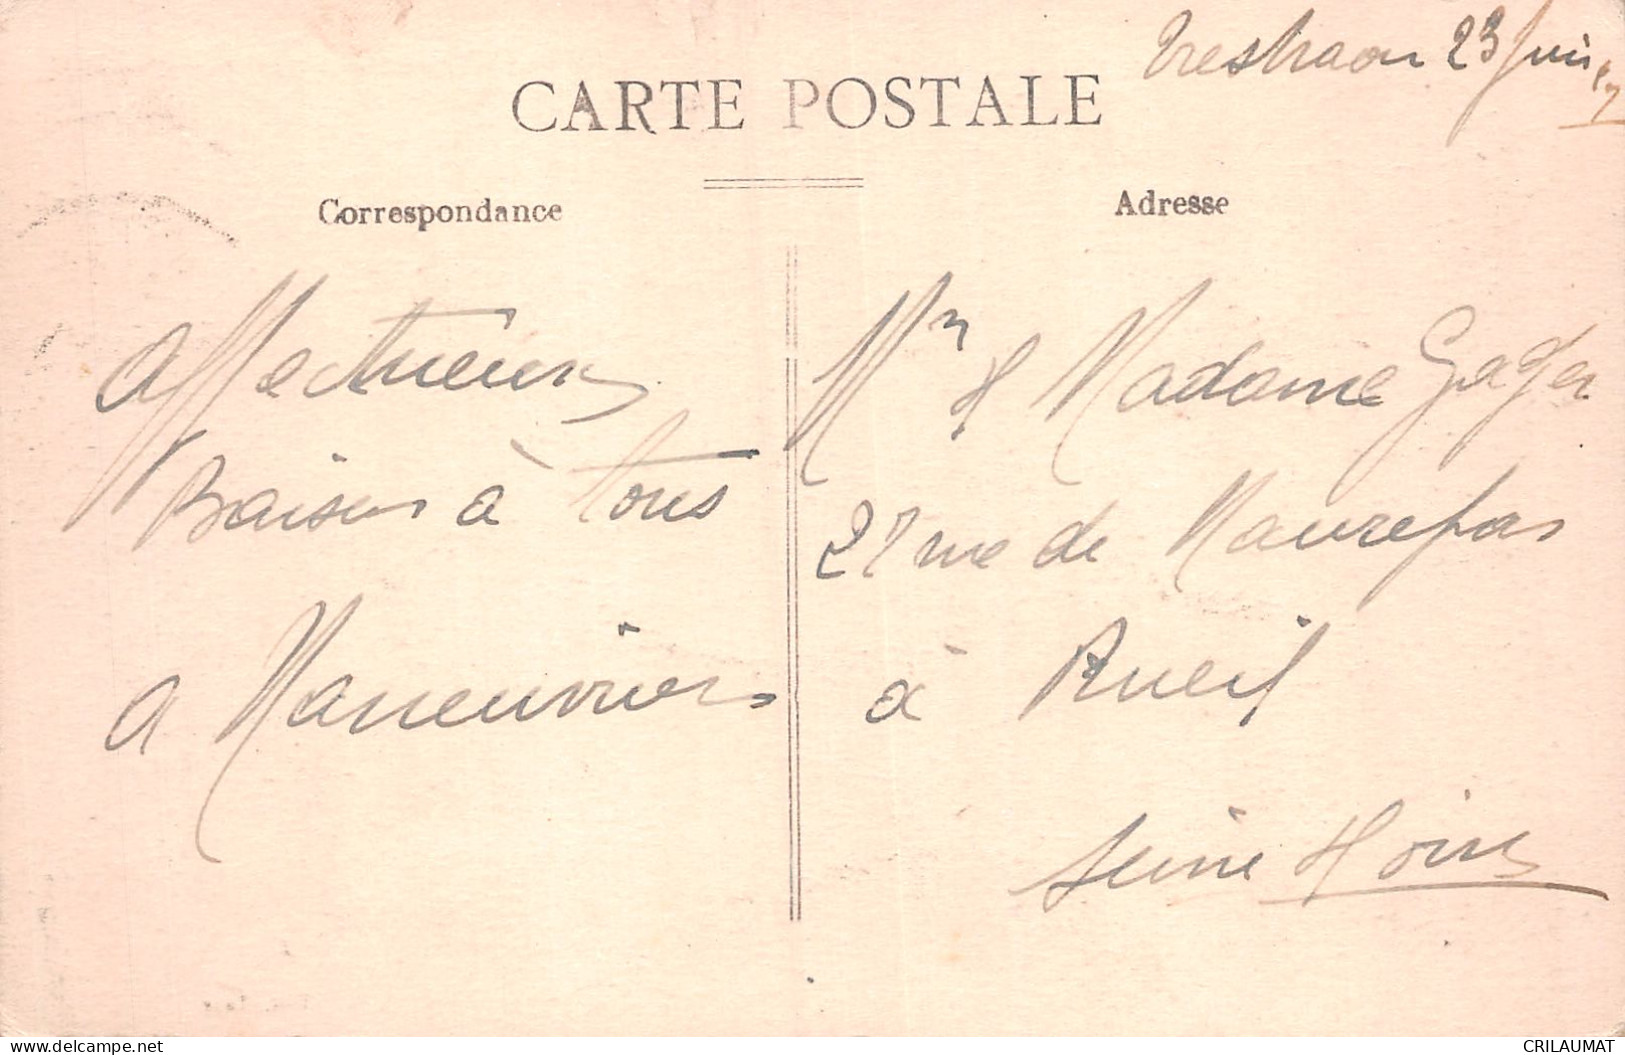 Trestraou 23 Juin
CARTE POSTALE
Correspondance
Adresse
Affectueux
Baisers à tous
A Maneuvrier
Mr & Madame
27 rue de Maurepas
à Rueil
Seine & Oise
delcampe.net
CRILAUMAT